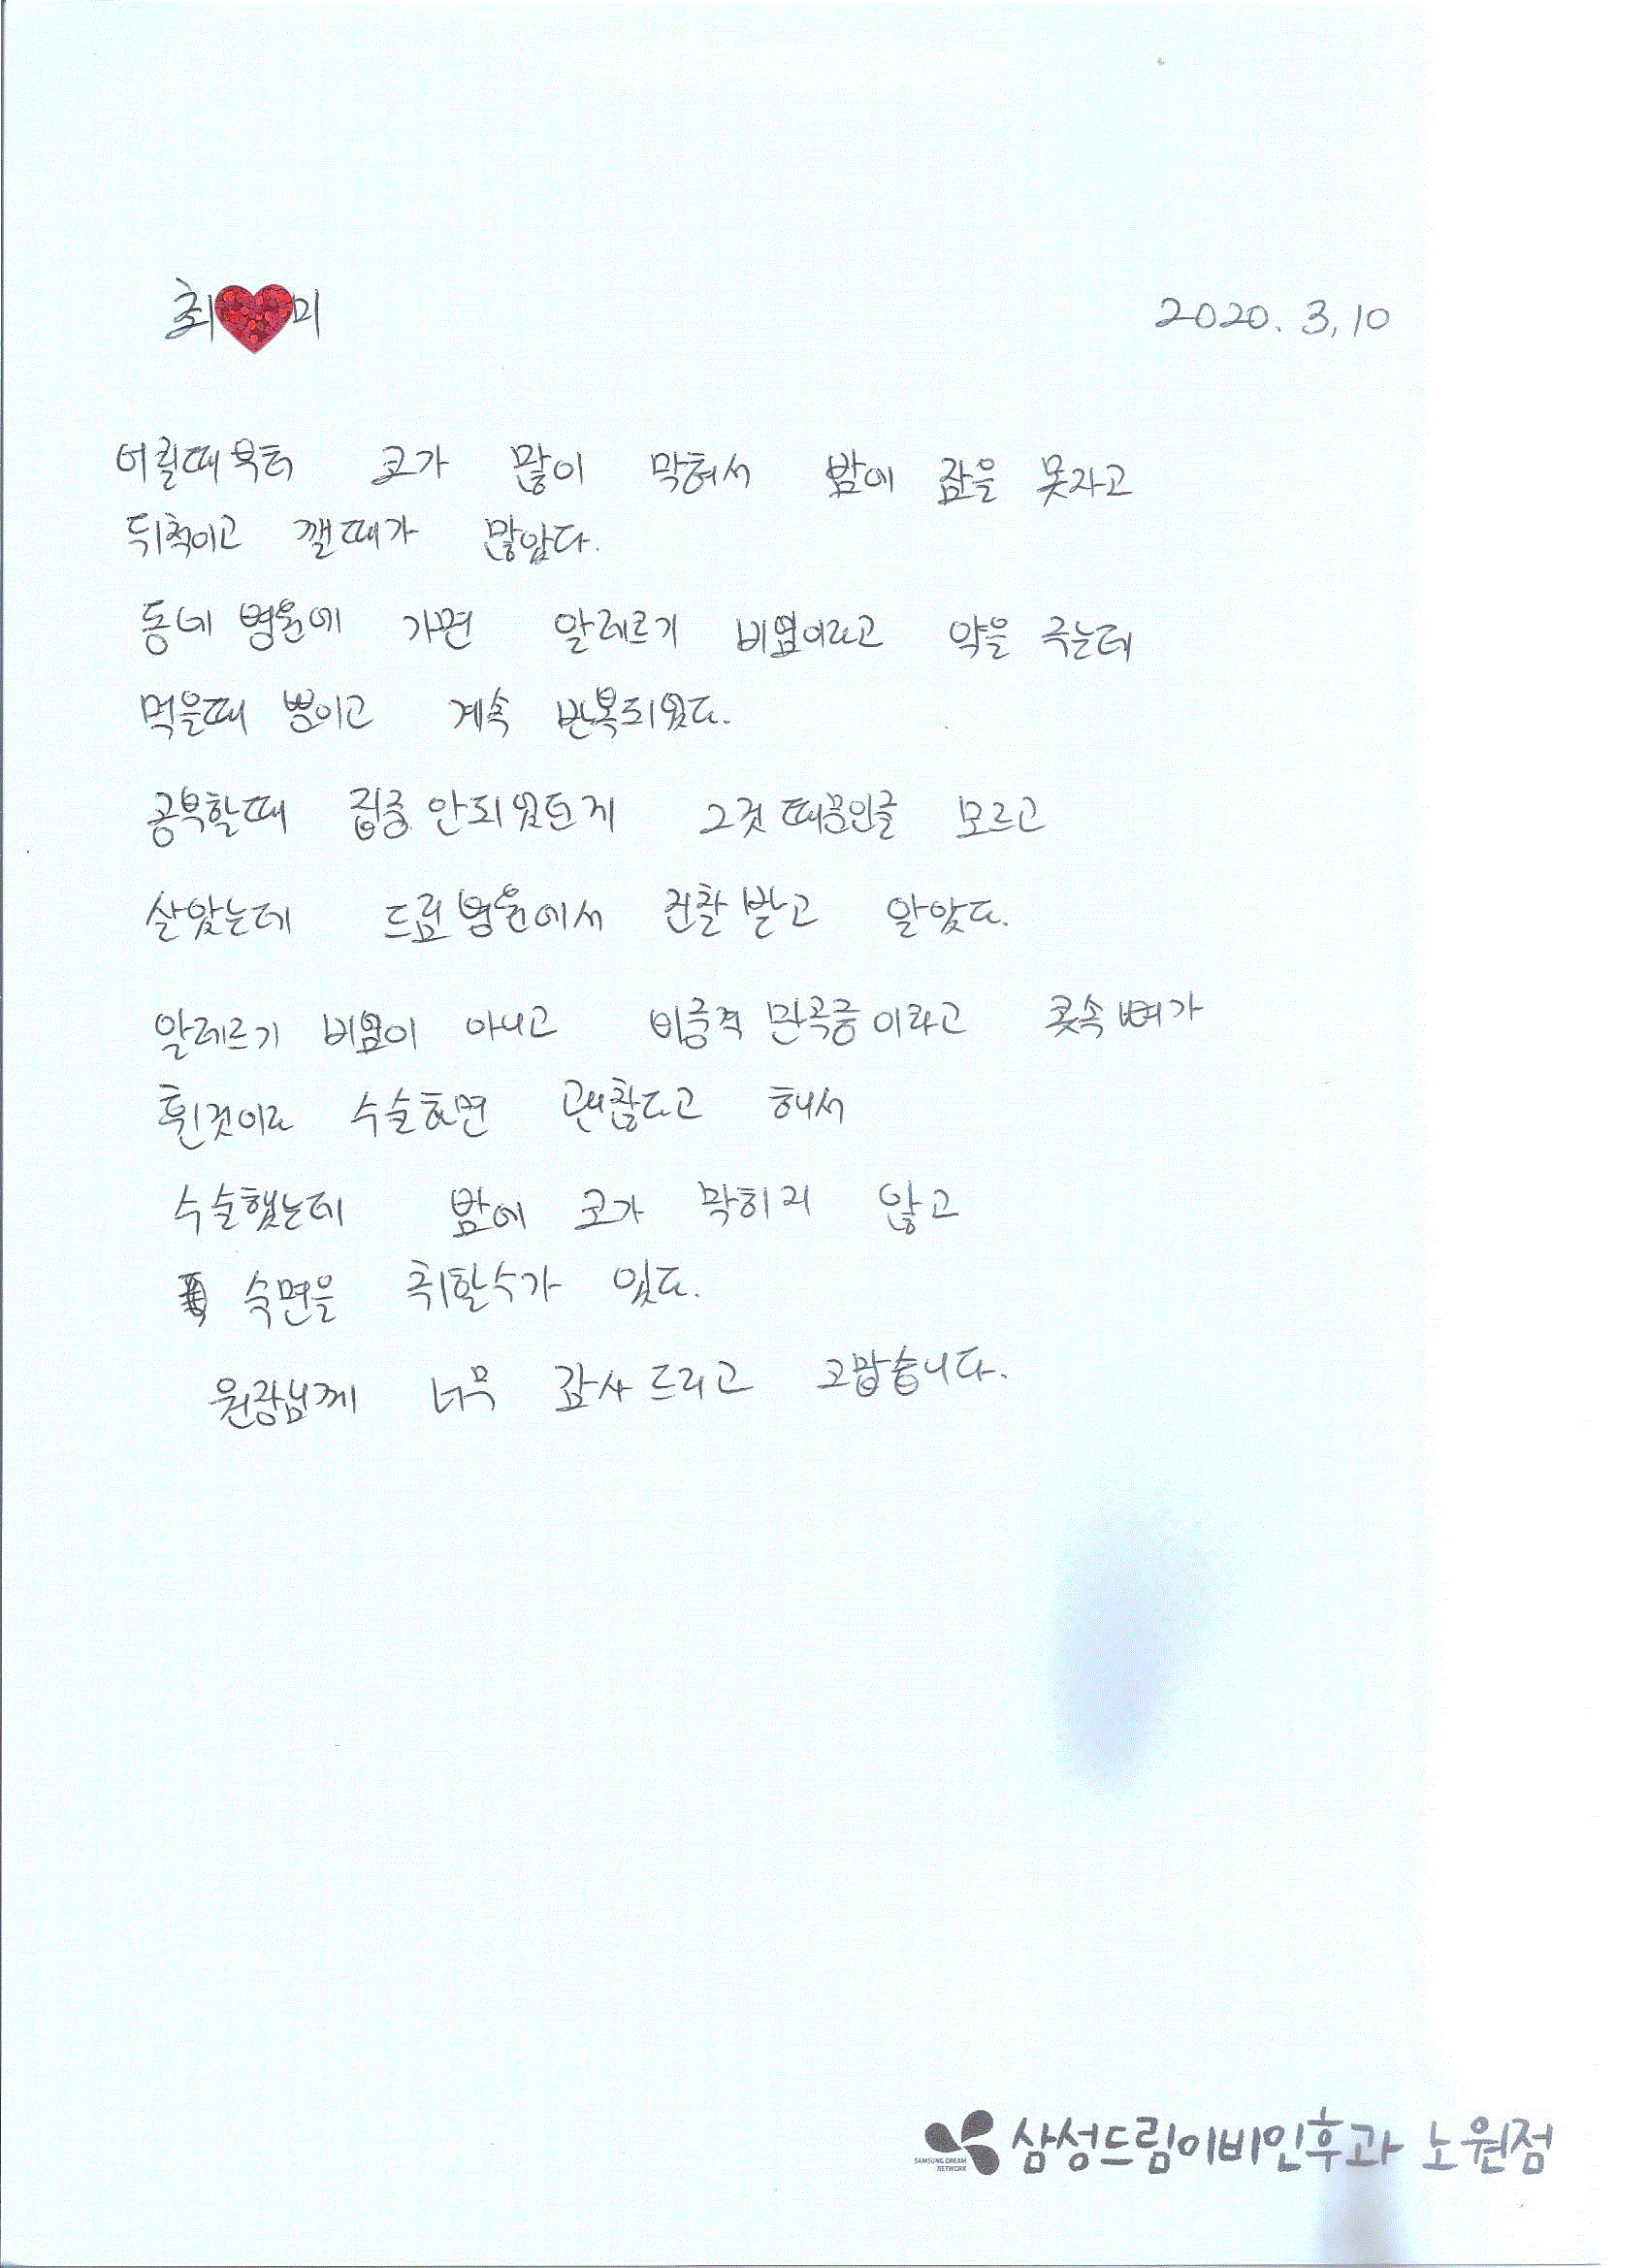 최♥미 2020. 3, 10
어릴때부터 코가 많이 막혀서 밤에 잠을 못자고
뒤척이고 깰때가 많았다.
동네 병원에 가면 알레르기 비염이라고 약을 주는데
먹을때 뿐이고 계속 반복되었다.
공부할때 집중 안되었던게 그것 때문인줄 모르고
살았는데 드림병원에서 진찰 받고 알았다.
알레르기 비염이 아니고 비중격 만곡증이라고 콧속 뼈가
휜것이라 수술하면 괜찮다고 해서
수술했는데 밤에 코가 막히지 않고
숙면을 취할수가 있다.
원장님께 너무 감사드리고 고맙습니다.
SAMSUNG DREAM NETWORK 삼성드림이비인후과 노원점